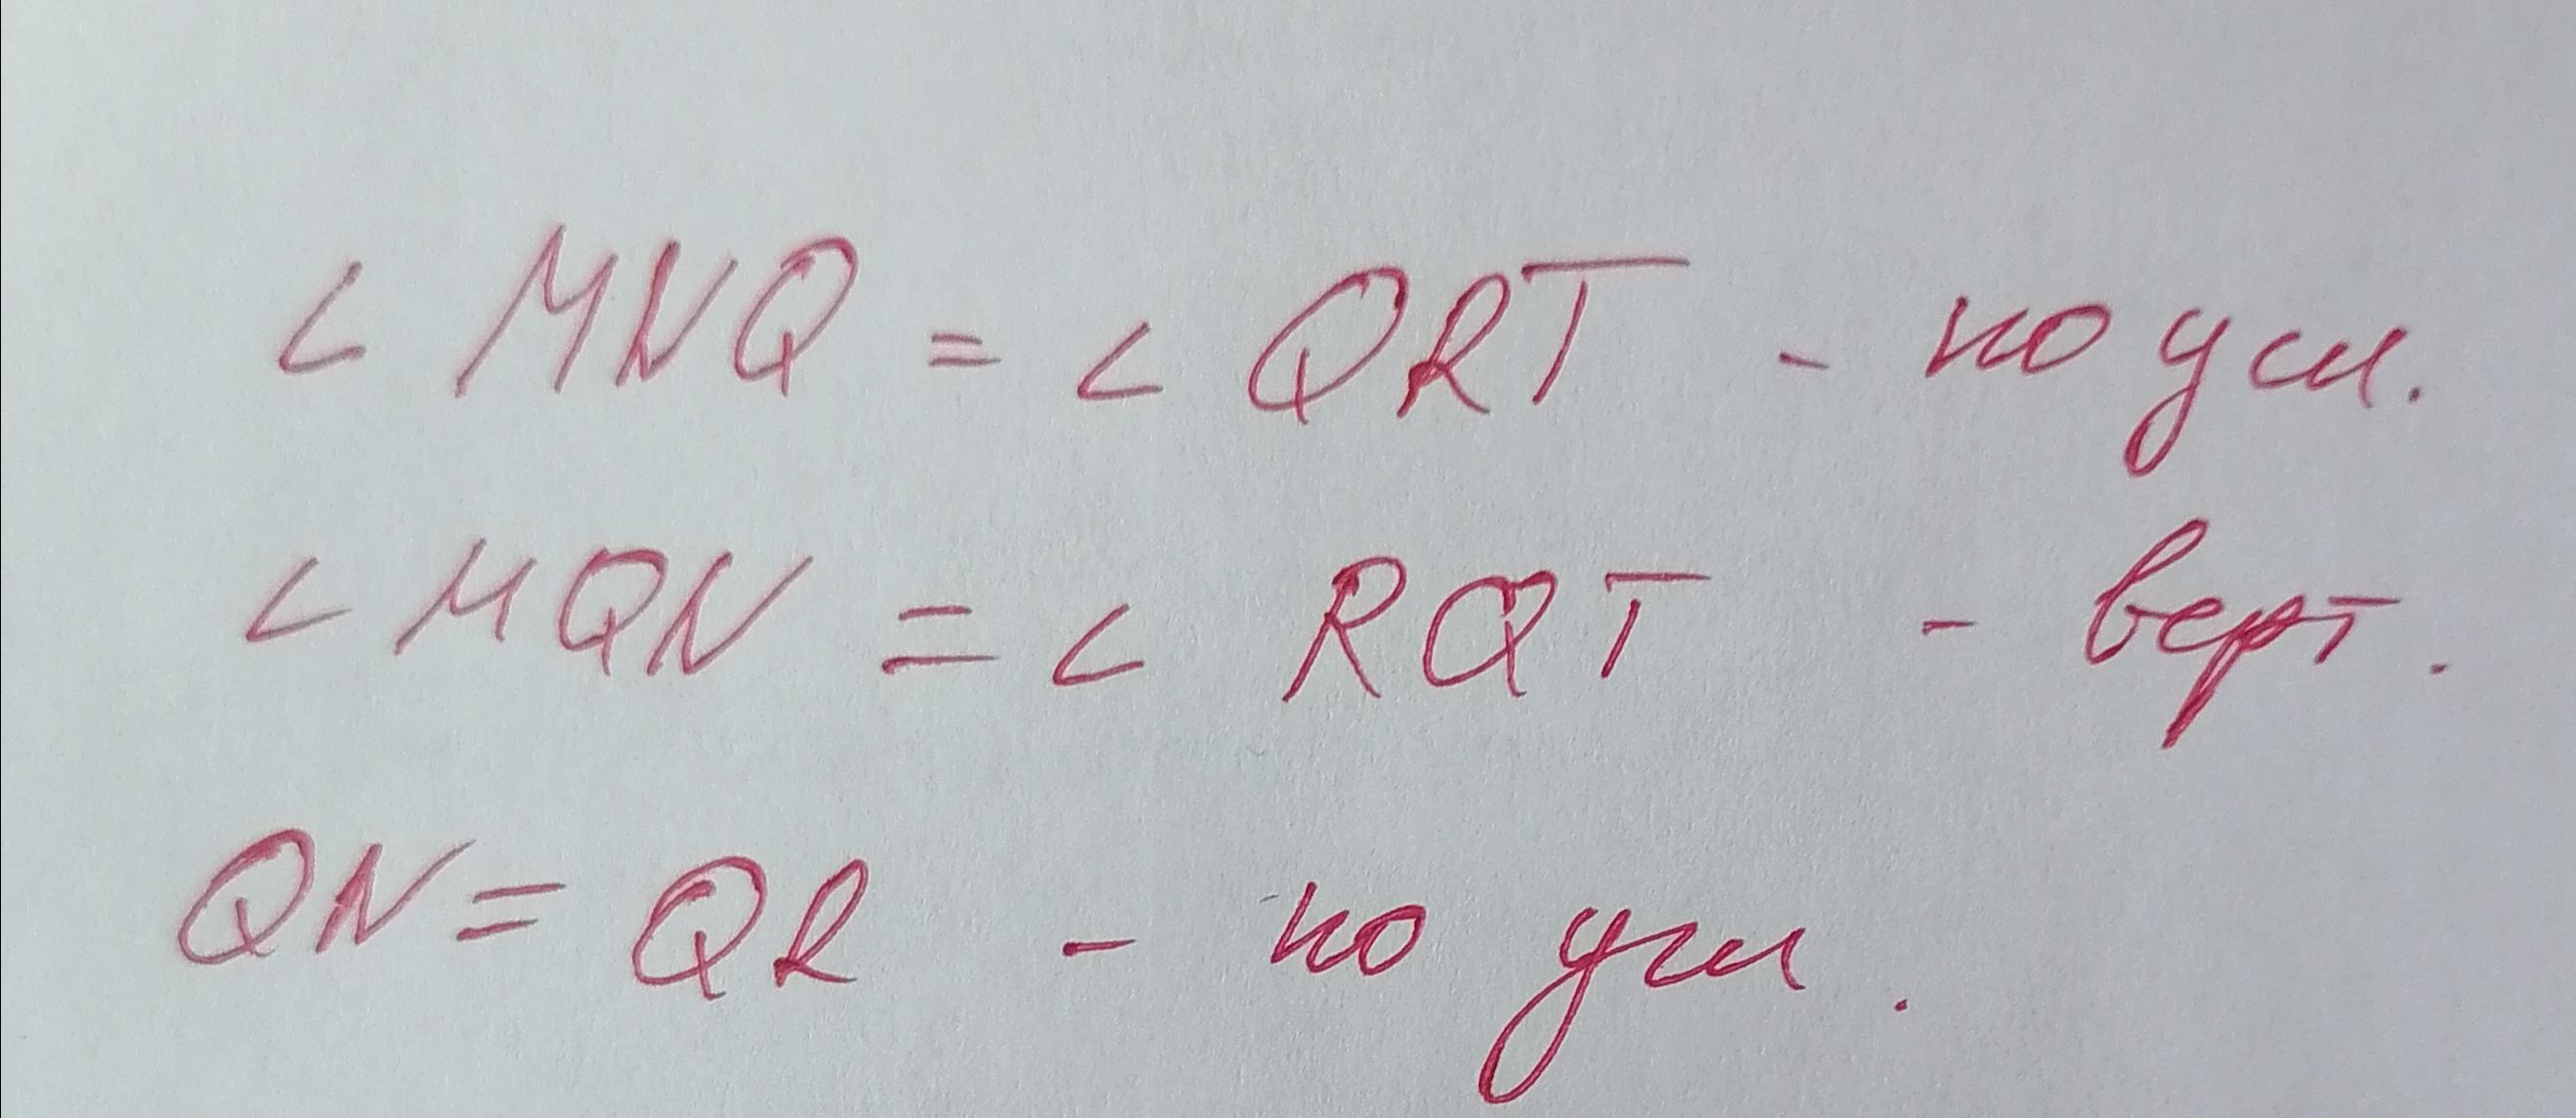 ∠ MNQ = ∠ QRT - по усл.
∠ MQN = ∠ RQT - верт.
QN = QR - по усл.